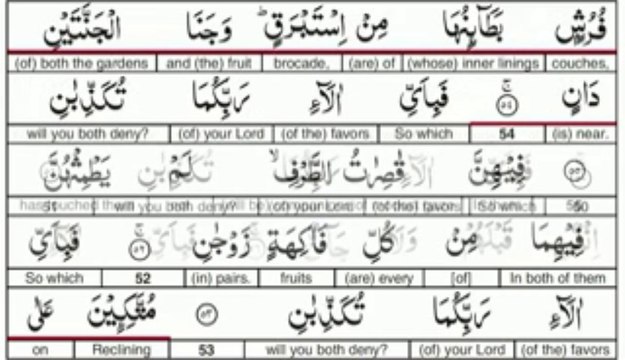 فُرُشٍ بَطَآئِنُهَا مِنْ اِسْتَبْرَقٍ ؕ وَجَنَا الْجَنَّتَيْنِ
couches, (whose) inner linings (are) of brocade, and (the) fruit (of) both the gardens
دَانٍ ۝٥٤ فَبِاَيِّ اٰلَآءِ رَبِّكُمَا تُكَذِّبٰنِ
(is) near. 54 So which (of the) favors (of) your Lord will you both deny?
فِيْهِنَّ قٰصِرٰتُ الطَّرْفِ ۙ لَمْ يَطْمِثْهُنَّ
So which (of the) favors (of) your Lord will you both deny? 51
فِيْهِمَا مِنْ كُلِّ فَاكِهَةٍ زَوْجٰنِ ۝٥٢ فَبِاَيِّ
In both of them [of] (are) every fruits (in) pairs. 52 So which
اٰلَآءِ رَبِّكُمَا تُكَذِّبٰنِ ۝٥٣ مُتَّكِـِٕيْنَ عَلٰى
(of the) favors (of) your Lord will you both deny? 53 Reclining on